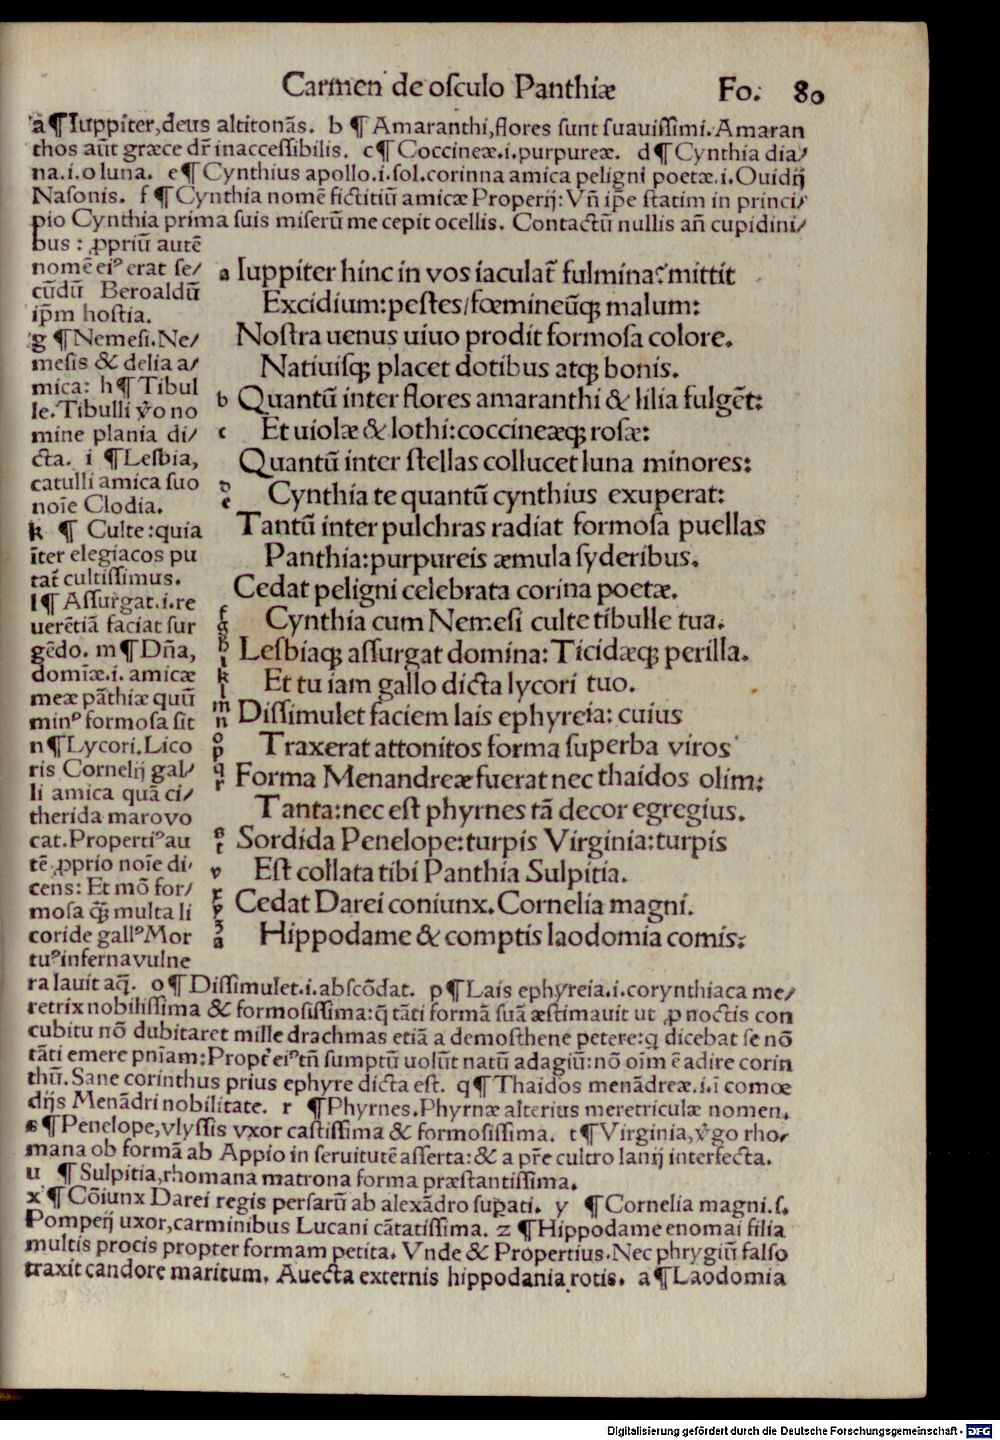 Carmen de oſculo Panthiæ Fo. 80
a ¶ Iuppiter,deus altitonãs. b ¶ Amaranthi,flores ſunt ſuauiſſimi.Amaran
thos aũt græce dr̃ inacceſſibilis. c ¶ Coccineæ.i.purpureæ. d ¶ Cynthia dia/
na.i.o luna. e ¶ Cynthius apollo.i.ſol.corinna amica peligni poetæ.i.Ouidij
Naſonis. f ¶ Cynthia nomẽ fictitiũ amicæ Properij: Vñ ip̃e ſtatim in princi/
pio Cynthia prima ſuis miſerũ me cepit ocellis. Contactũ nullis añ cupidini/
bus : ꝓpriũ autẽ
nomẽ eiꝰ erat ſe/
cũdũ Beroaldũ
ip̃m hoſtia.
g ¶ Nemeſi.Ne/
meſis & delia a/
mica: h ¶ Tibul
le.Tibulli ṽo no
mine plania di/
cta. i ¶ Lesbia,
catulli amica ſuo
noĩe Clodia.
k ¶ Culte:quia
ĩter elegiacos pu
tat̃ cultiſſimus.
l ¶ Aſſurgat.i.re
uerẽtiã faciat ſur
gẽdo. m ¶ Dña,
domĩæ.i. amicæ
meæ pãthiæ quũ
minꝰ formoſa ſit
n ¶ Lycori.Lico
ris Cornelij gal/
li amica quã ci/
therida marovo
cat.Propertiꝰau
tẽ ꝓprio noĩe di/
cens: Et mõ for/
moſa q̃ multa li
coride gallꝰMor
tuꝰinfernavulne
a Iuppiter hinc in vos iaculat̃ fulmina: mittit
Excidium:peſtes/fœmineũqꝫ malum:
Noſtra uenus uiuo prodit formoſa colore.
Natiuiſqꝫ placet dotibus atqꝫ bonis.
b Quantũ inter flores amaranthi & lilia fulgẽt:
c Et uiolæ & lothi:coccineæqꝫ roſæ:
Quantũ inter ſtellas collucet luna minores:
d e Cynthia te quantũ cynthius exuperat:
Tantũ inter pulchras radiat formoſa puellas
Panthia:purpureis æmula ſyderibus.
Cedat peligni celebrata corina poetæ.
f g Cynthia cum Nemeſi culte tibulle tua.
h i Lesbiaqꝫ aſſurgat domina: Ticidæqꝫ perilla.
k l Et tu iam gallo dicta lycori tuo.
m n Diſſimulet faciem lais ephyreia: cuius
o p Traxerat attonitos forma ſuperba viros
q r Forma Menandreæ fuerat nec thaidos olim:
Tanta:nec eſt phyrnes tã decor egregius.
s t Sordida Penelope:turpis Virginia:turpis
v Eſt collata tibi Panthia Sulpitia.
x y Cedat Darei coniunx.Cornelia magni.
z a Hippodame & comptis laodomia comis:
ra lauit aq̃. o ¶ Diſſimulet.i.abſcõdat. p ¶ Lais ephyreia.i.corynthiaca me/
retrix nobiliſſima & formoſiſſima:q̃ tãti formã ſuã æſtimauit ut ꝓ noctis con
cubitu nõ dubitaret mille drachmas etiã a demoſthene petere:q dicebat ſe nõ
tãti emere pnĩam:Propt̃ eiꝰ tñ ſumptũ uolũt natũ adagiũ: nõ oĩm ẽ adire corin
thũ. Sane corinthus prius ephyre dicta eſt. q ¶ Thaidos menãdreæ.i.ĩ comœ
dijs Menãdri nobilitate. r ¶ Phyrnes.Phyrnæ alterius meretriculæ nomen.
s ¶ Penelope,vlyſſis vxor caſtiſſima & formoſiſſima. t ¶ Virginia,ṽgo rho/
mana ob formã ab Appio in ſeruitutẽ aſſerta: & a pr̃e cultro lanij interfecta.
u ¶ Sulpitia,rhomana matrona forma præſtantiſſima.
x ¶ Cõiunx Darei regis perſarũ ab alexãdro ſuꝑati. y ¶ Cornelia magni.ſ.
Pomperij uxor,carminibus Lucani cãtatiſſima. z ¶ Hippodame enomai filia
multis procis propter formam petita. Vnde & Propertius.Nec phrygiũ falſo
traxit candore maritum. Auecta externis hippodania rotis. a ¶ Laodomia
Digitalisierung gefördert durch die Deutsche Forschungsgemeinschaft - DFG